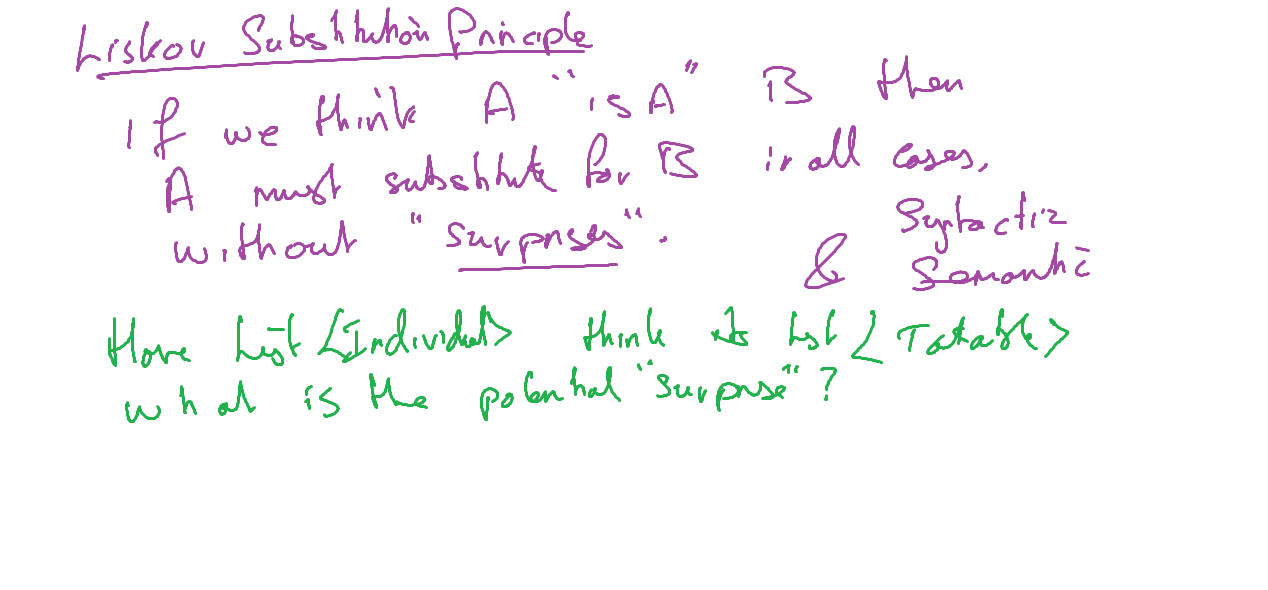 Liskov Substitution Principle
If we think A "is A" B then
A must substitute for B in all cases,
without "surprises".
Syntactic
& Semantic
Have List <Individual> think its List <Taxable>
what is the potential "surprise"?